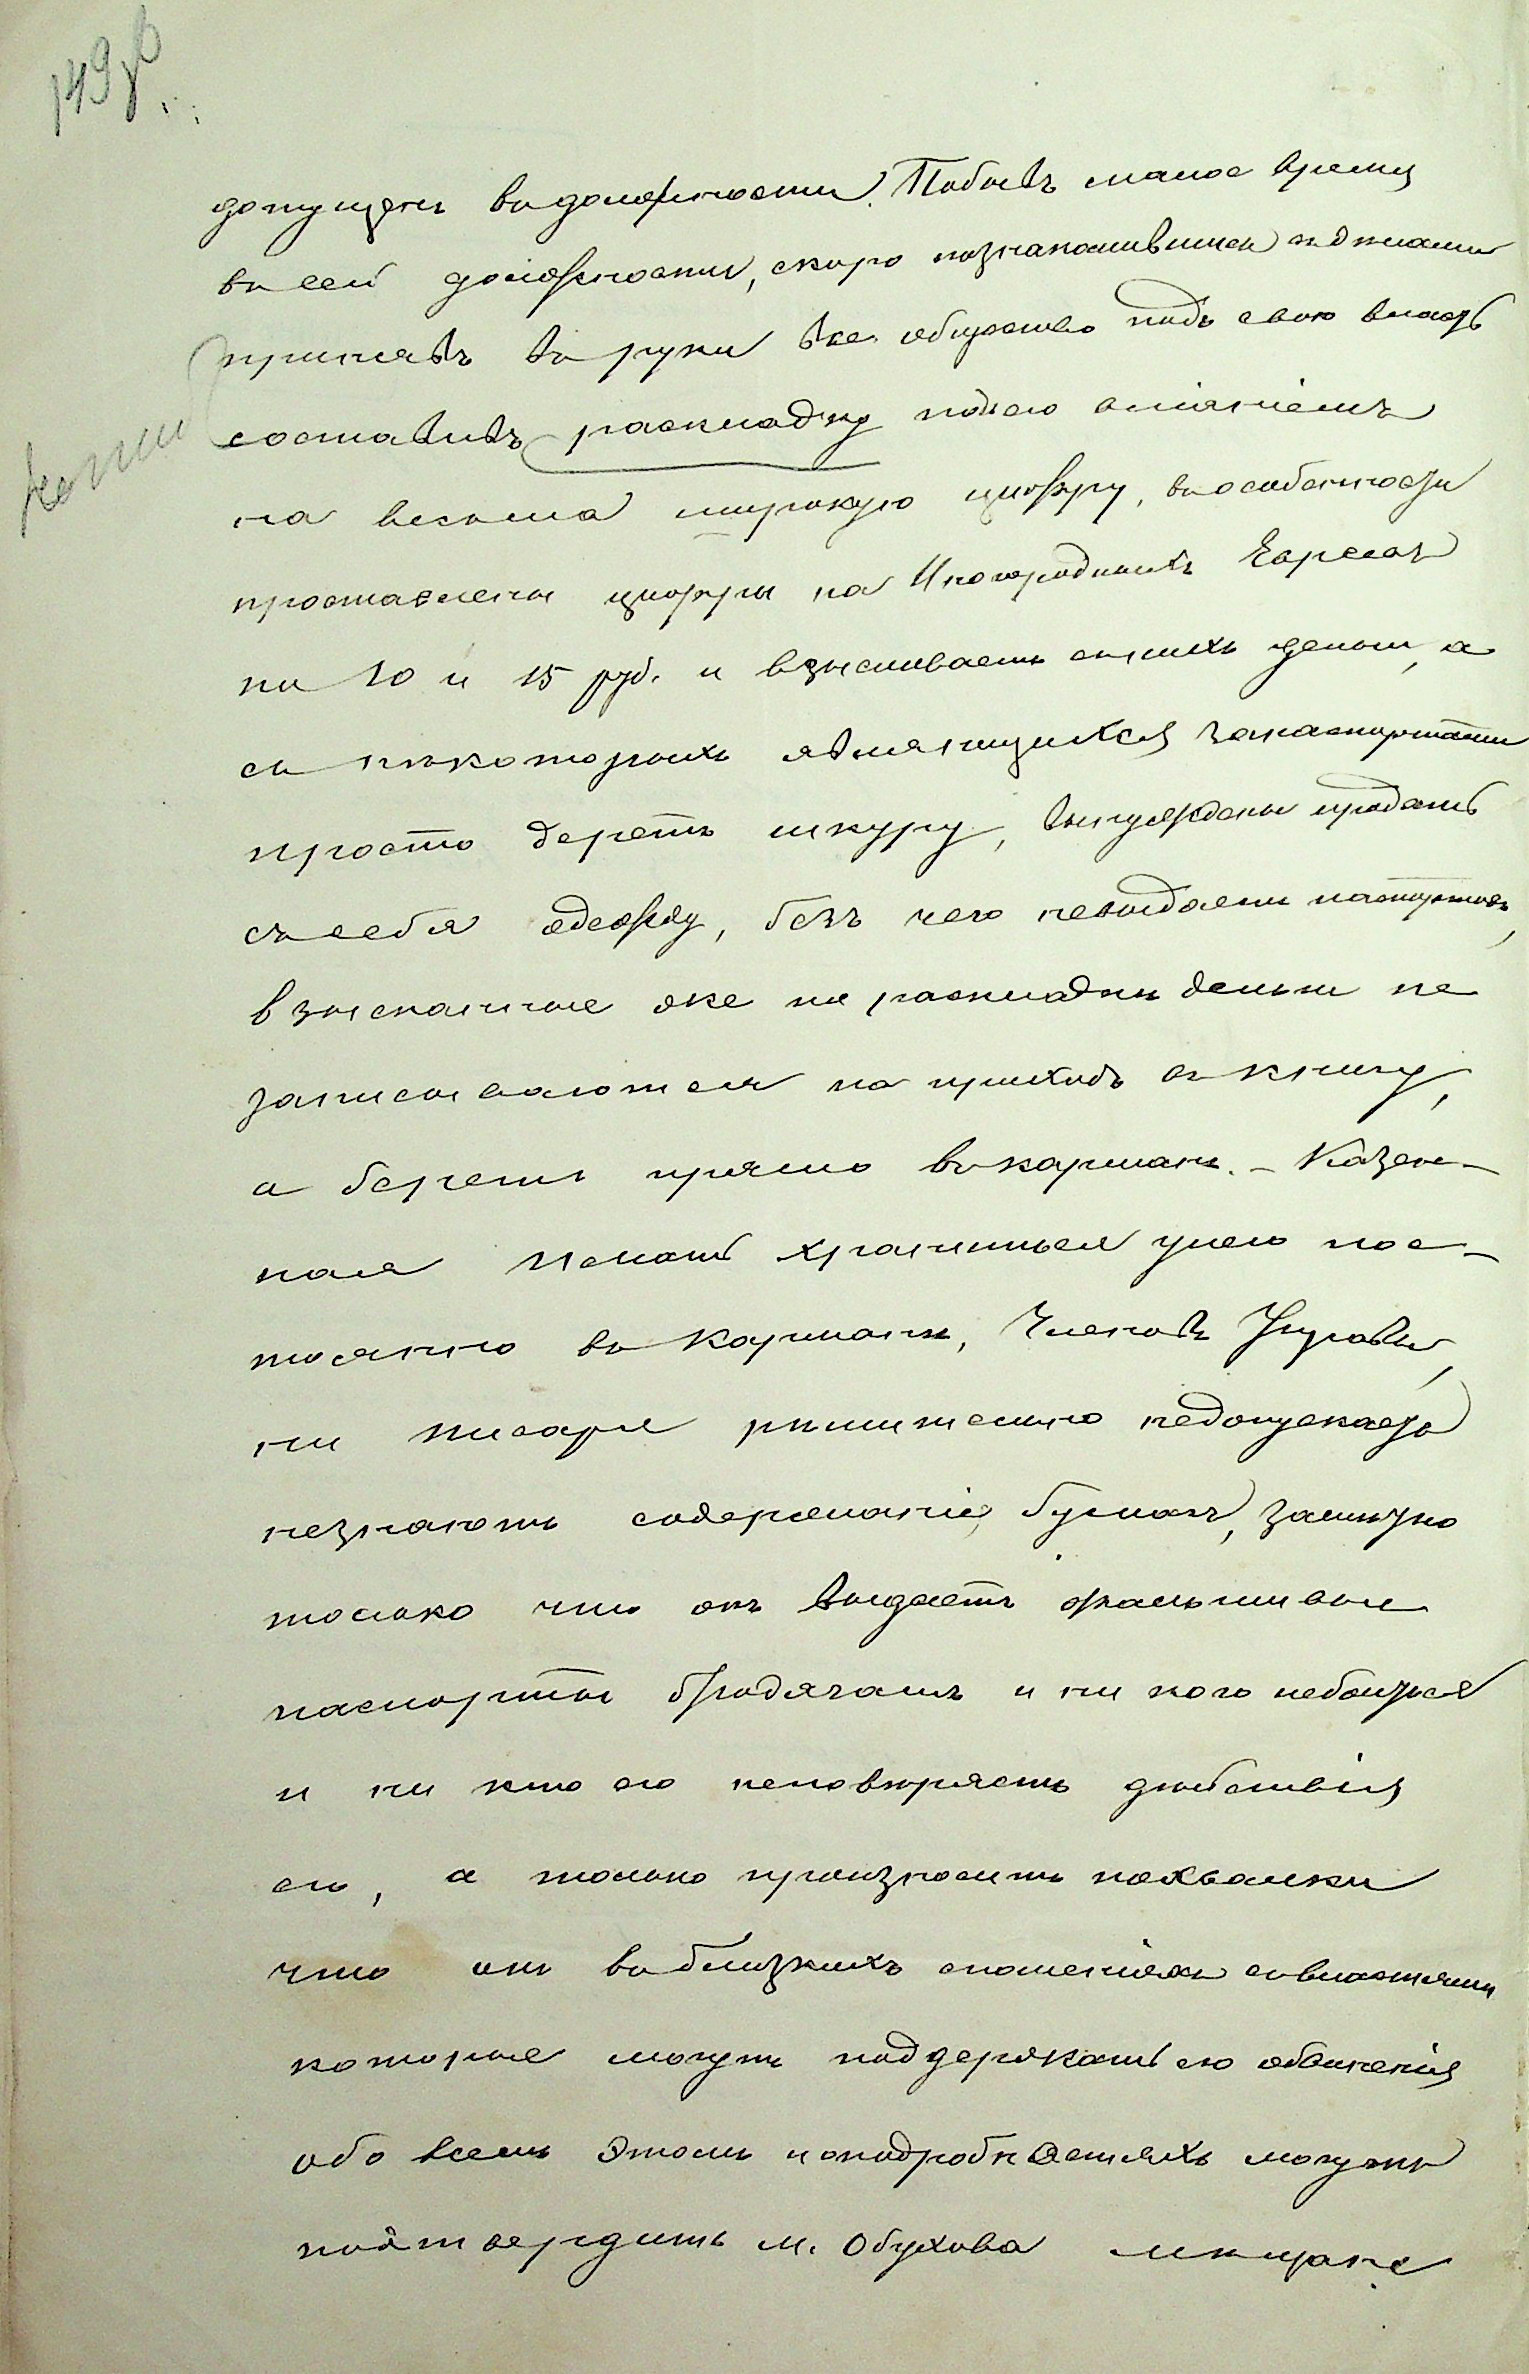 149 об
допущенъ въ должности. Побывъ малое время
въ сей должности, скоро познакомившися
принявъ въ руки все общество подъ свою власть
копия
составивъ раскладку подъ его вліяніемъ
на весьма широкую цифру, въ особенности
проставлены цифры на Иногородныхъ Евреевъ
по 10 и 15 руб. и взыскиваетъ снихъ деньги, а
съ некоторыхъ являющихся запаспортами
просто деретъ шкуру, вынуждены продать
съ себя одежду, безъ чего невыдаетъ паспортовъ,
взысканные же по раскладкѣ деньги не
записываются на приходъ въ книгу,
а беретъ прямо въ карманъ. - Казен-
ная печать хранится унего пос-
тоянно въ карманѣ, Членовъ Управы,
ни писаря рѣшительно недопускаетъ
незнаютъ содержаніе бумагъ, замѣтно
только что онъ выдаетъ фальшивые
паспорты бродячамъ и ни кого небоится
и ни кто его неповѣряетъ дѣйствія
его, а только произноситъ похвалки
что онъ въ близкихъ сношеніяхъ совластями
которые могутъ поддержать его обвиненія
обо всемъ этомъ и оподробностяхъ могутъ
подтвердить м. Обухова мѣщане